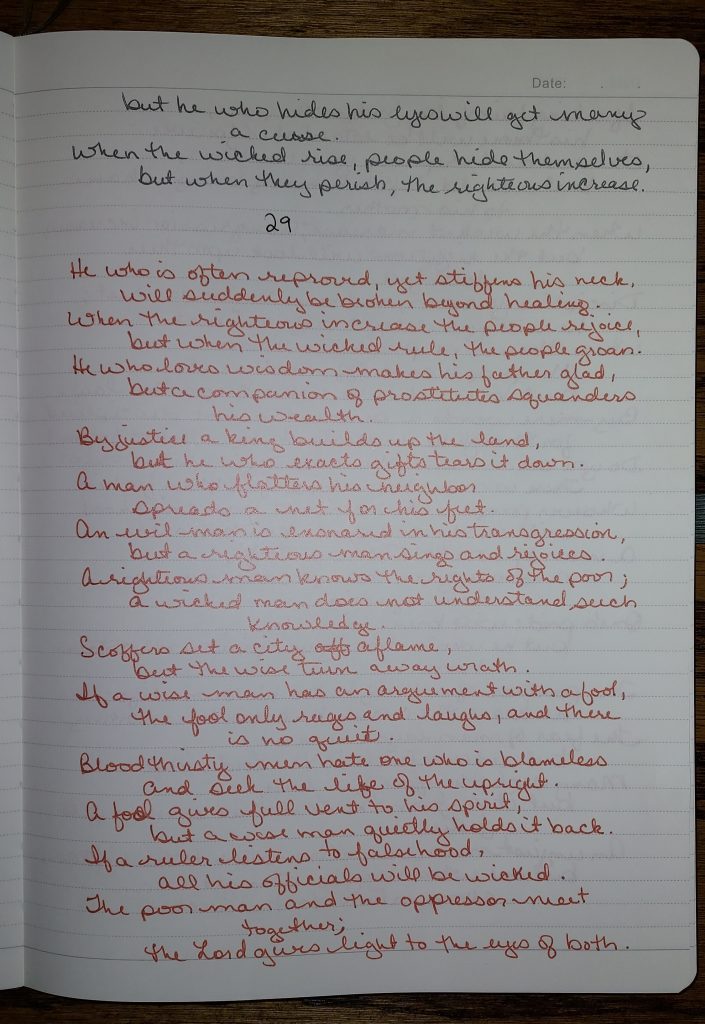 Date: . .
but he who hides his eyes will get many
a curse.
When the wicked rise, people hide themselves,
but when they perish, the righteous increase.
29
He who is often reproved, yet stiffens his neck,
will suddenly be broken beyond healing.
When the righteous increase the people rejoice,
but when the wicked rule, the people groan.
He who loves wisdom makes his father glad,
but a companion of prostitutes squanders
his wealth.
By justice a king builds up the land,
but he who exacts gifts tears it down.
A man who flatters his neighbor
spreads a net for his feet.
An evil man is ensnared in his transgression,
but a righteous man sings and rejoices.
A righteous man knows the rights of the poor;
a wicked man does not understand such
knowledge.
Scoffers set a city aflame,
but the wise turn away wrath.
If a wise man has an arguement with a fool,
the fool only rages and laughs, and there
is no quiet.
Bloodthirsty men hate one who is blameless
and seek the life of the upright.
A fool gives full vent to his spirit,
but a wise man quietly holds it back.
If a ruler listens to falsehood,
all his officials will be wicked.
The poor man and the oppressor meet
together;
the Lord gives light to the eyes of both.